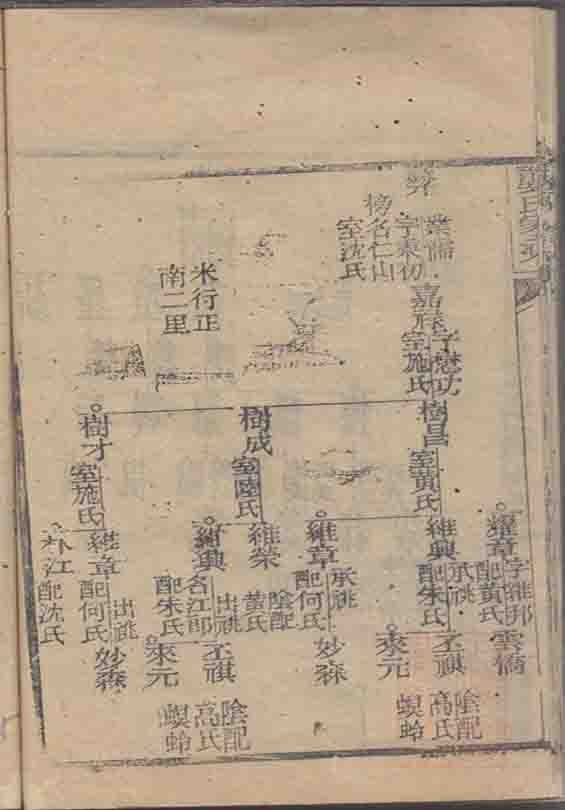 業儒
字東仂
榜名仁山
室沈氏
米行正
南二里
嘉祿
字懋功
室施氏
樹昌
室黃氏
樹成
室陸氏
樹才
室施氏
耀章
字維邦
配黃氏
雲僑
維興
承祧
配朱氏
丕祺
陰配
高氏
螟蛉
來元
維章
承祧
配何氏
妙森
維榮
陰配
黃氏
維興
出祧
名江郎
配朱氏
丕祺
陰配
高氏
螟蛉
來元
維章
出祧
配何氏
妙森
補江
配沈氏